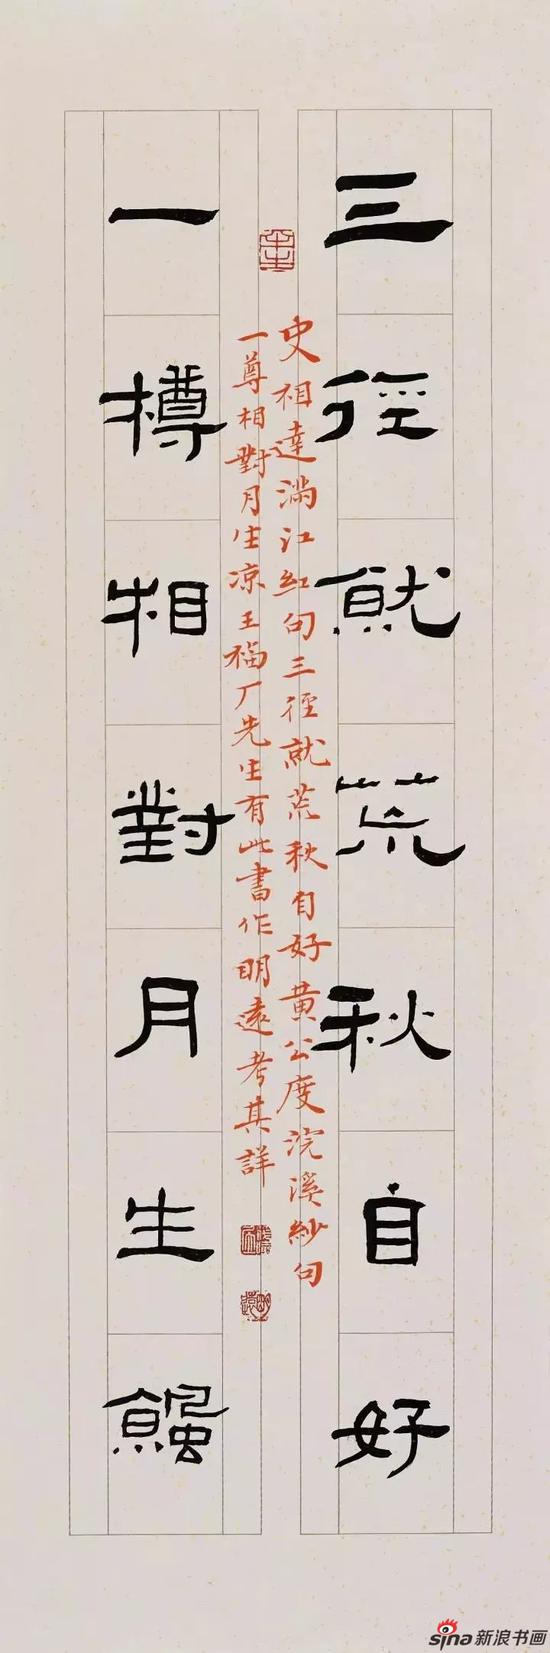 三徑就荒秋自好
史相達滿江紅句三徑就荒秋自好黃公度浣溪紗句
一尊相對月生凉王福厂先生有此書作明遠考其詳
一樽相對月生
明遠
sina新浪书画